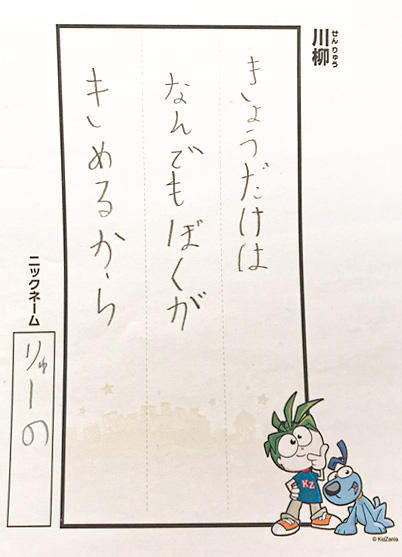 川柳
せんりゅう
きょうだけは
なんでもぼくが
きめるから
ニックネーム
りゅーの
KZ
© KidZania